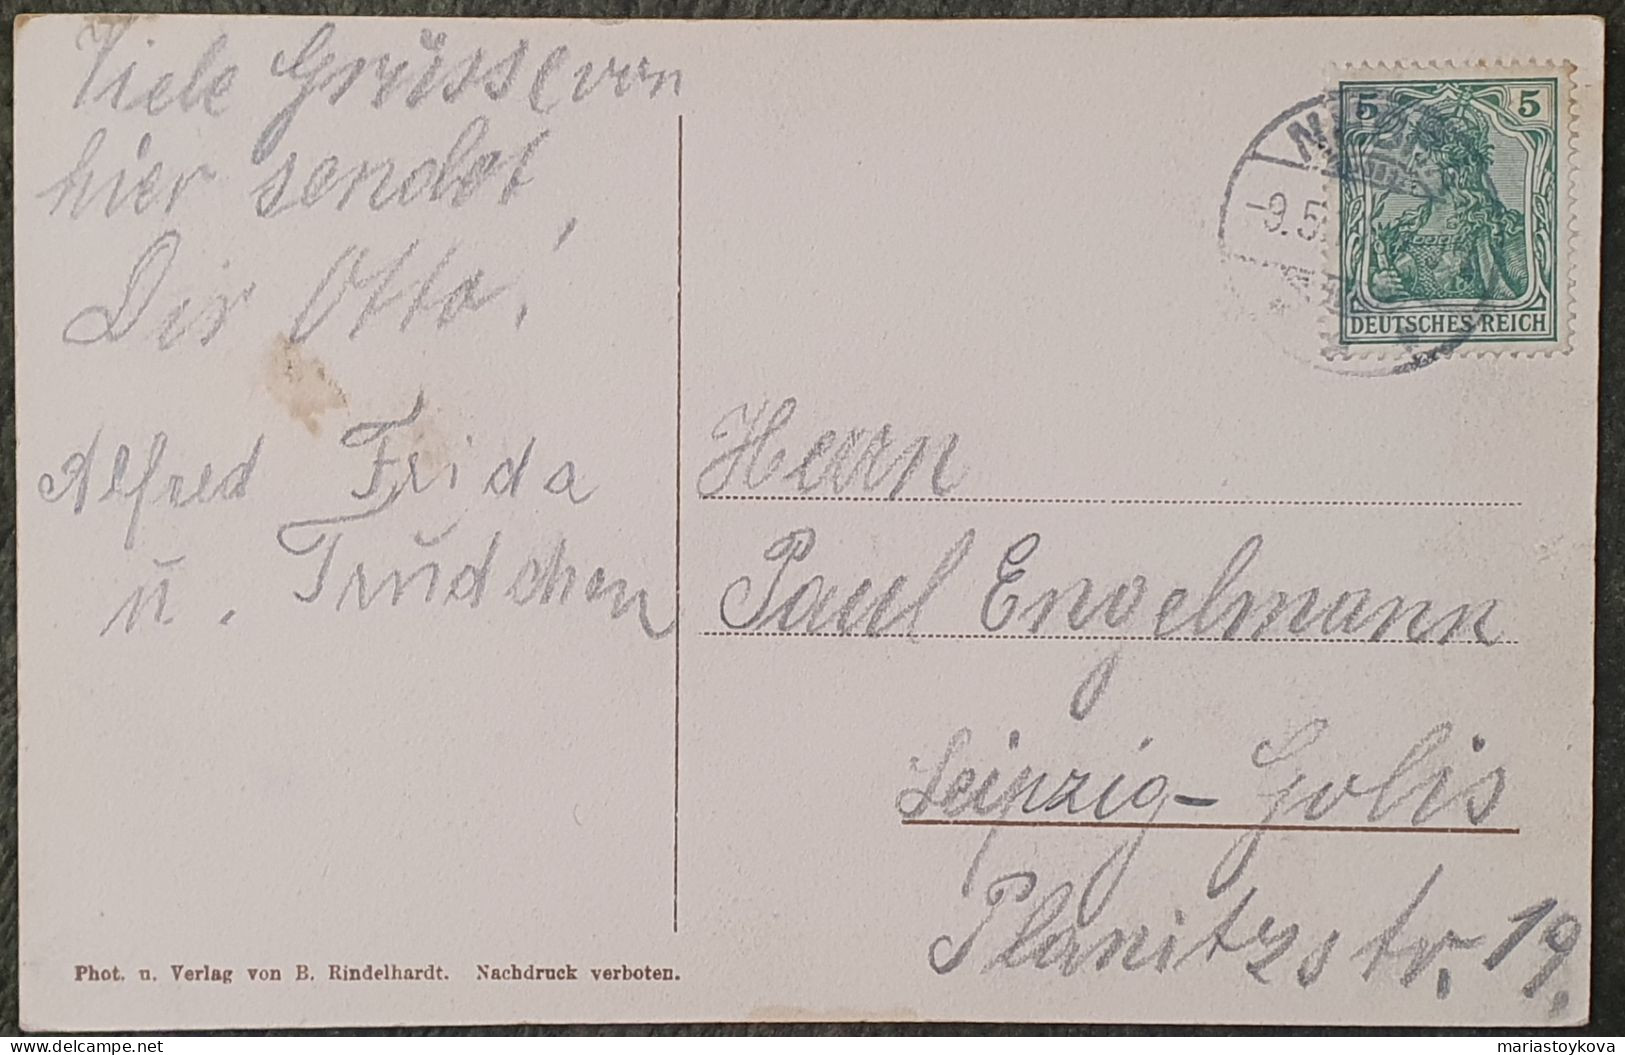 Viele Grüsse von
hier sendet,
Dir Otto,
Alfred Frida
u. Trudchen
5 5
9.5.
DEUTSCHES REICH
Herrn
Paul Engelmann
Leipzig-Golis
Planitzstr. 19.
Phot. u. Verlag von B. Rindelhardt. Nachdruck verboten.
delcampe.net
mariastoykova